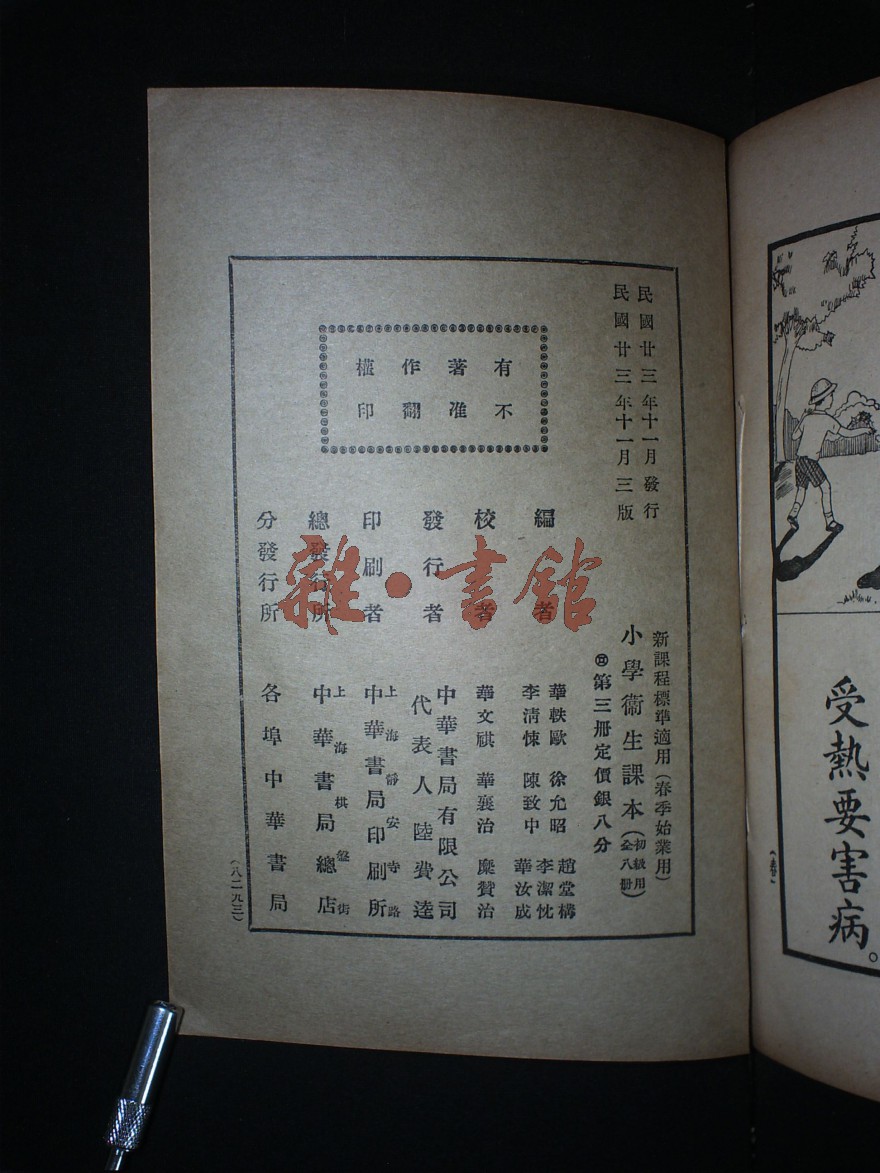 受熱要害病。
(春)
民國廿三年十一月發行
民國廿三年十一月三版
有著作權
不准翻印
新課程標準適用(春季始業用)
小學衞生課本(初級用全八册)
第三册定價銀八分
編者
華軼歐 徐允昭 趙堂構
李清悚 陳致中 李潔忱
華汝成
校者
華文祺 華襄治 糜贊治
發行者
中華書局有限公司
代表人 陸費逵
印刷者
上海靜安寺路
中華書局印刷所
總發行所
上海棋盤街
中華書局總店
分發行所
各埠中華書局
(八二九三)
雜·書館